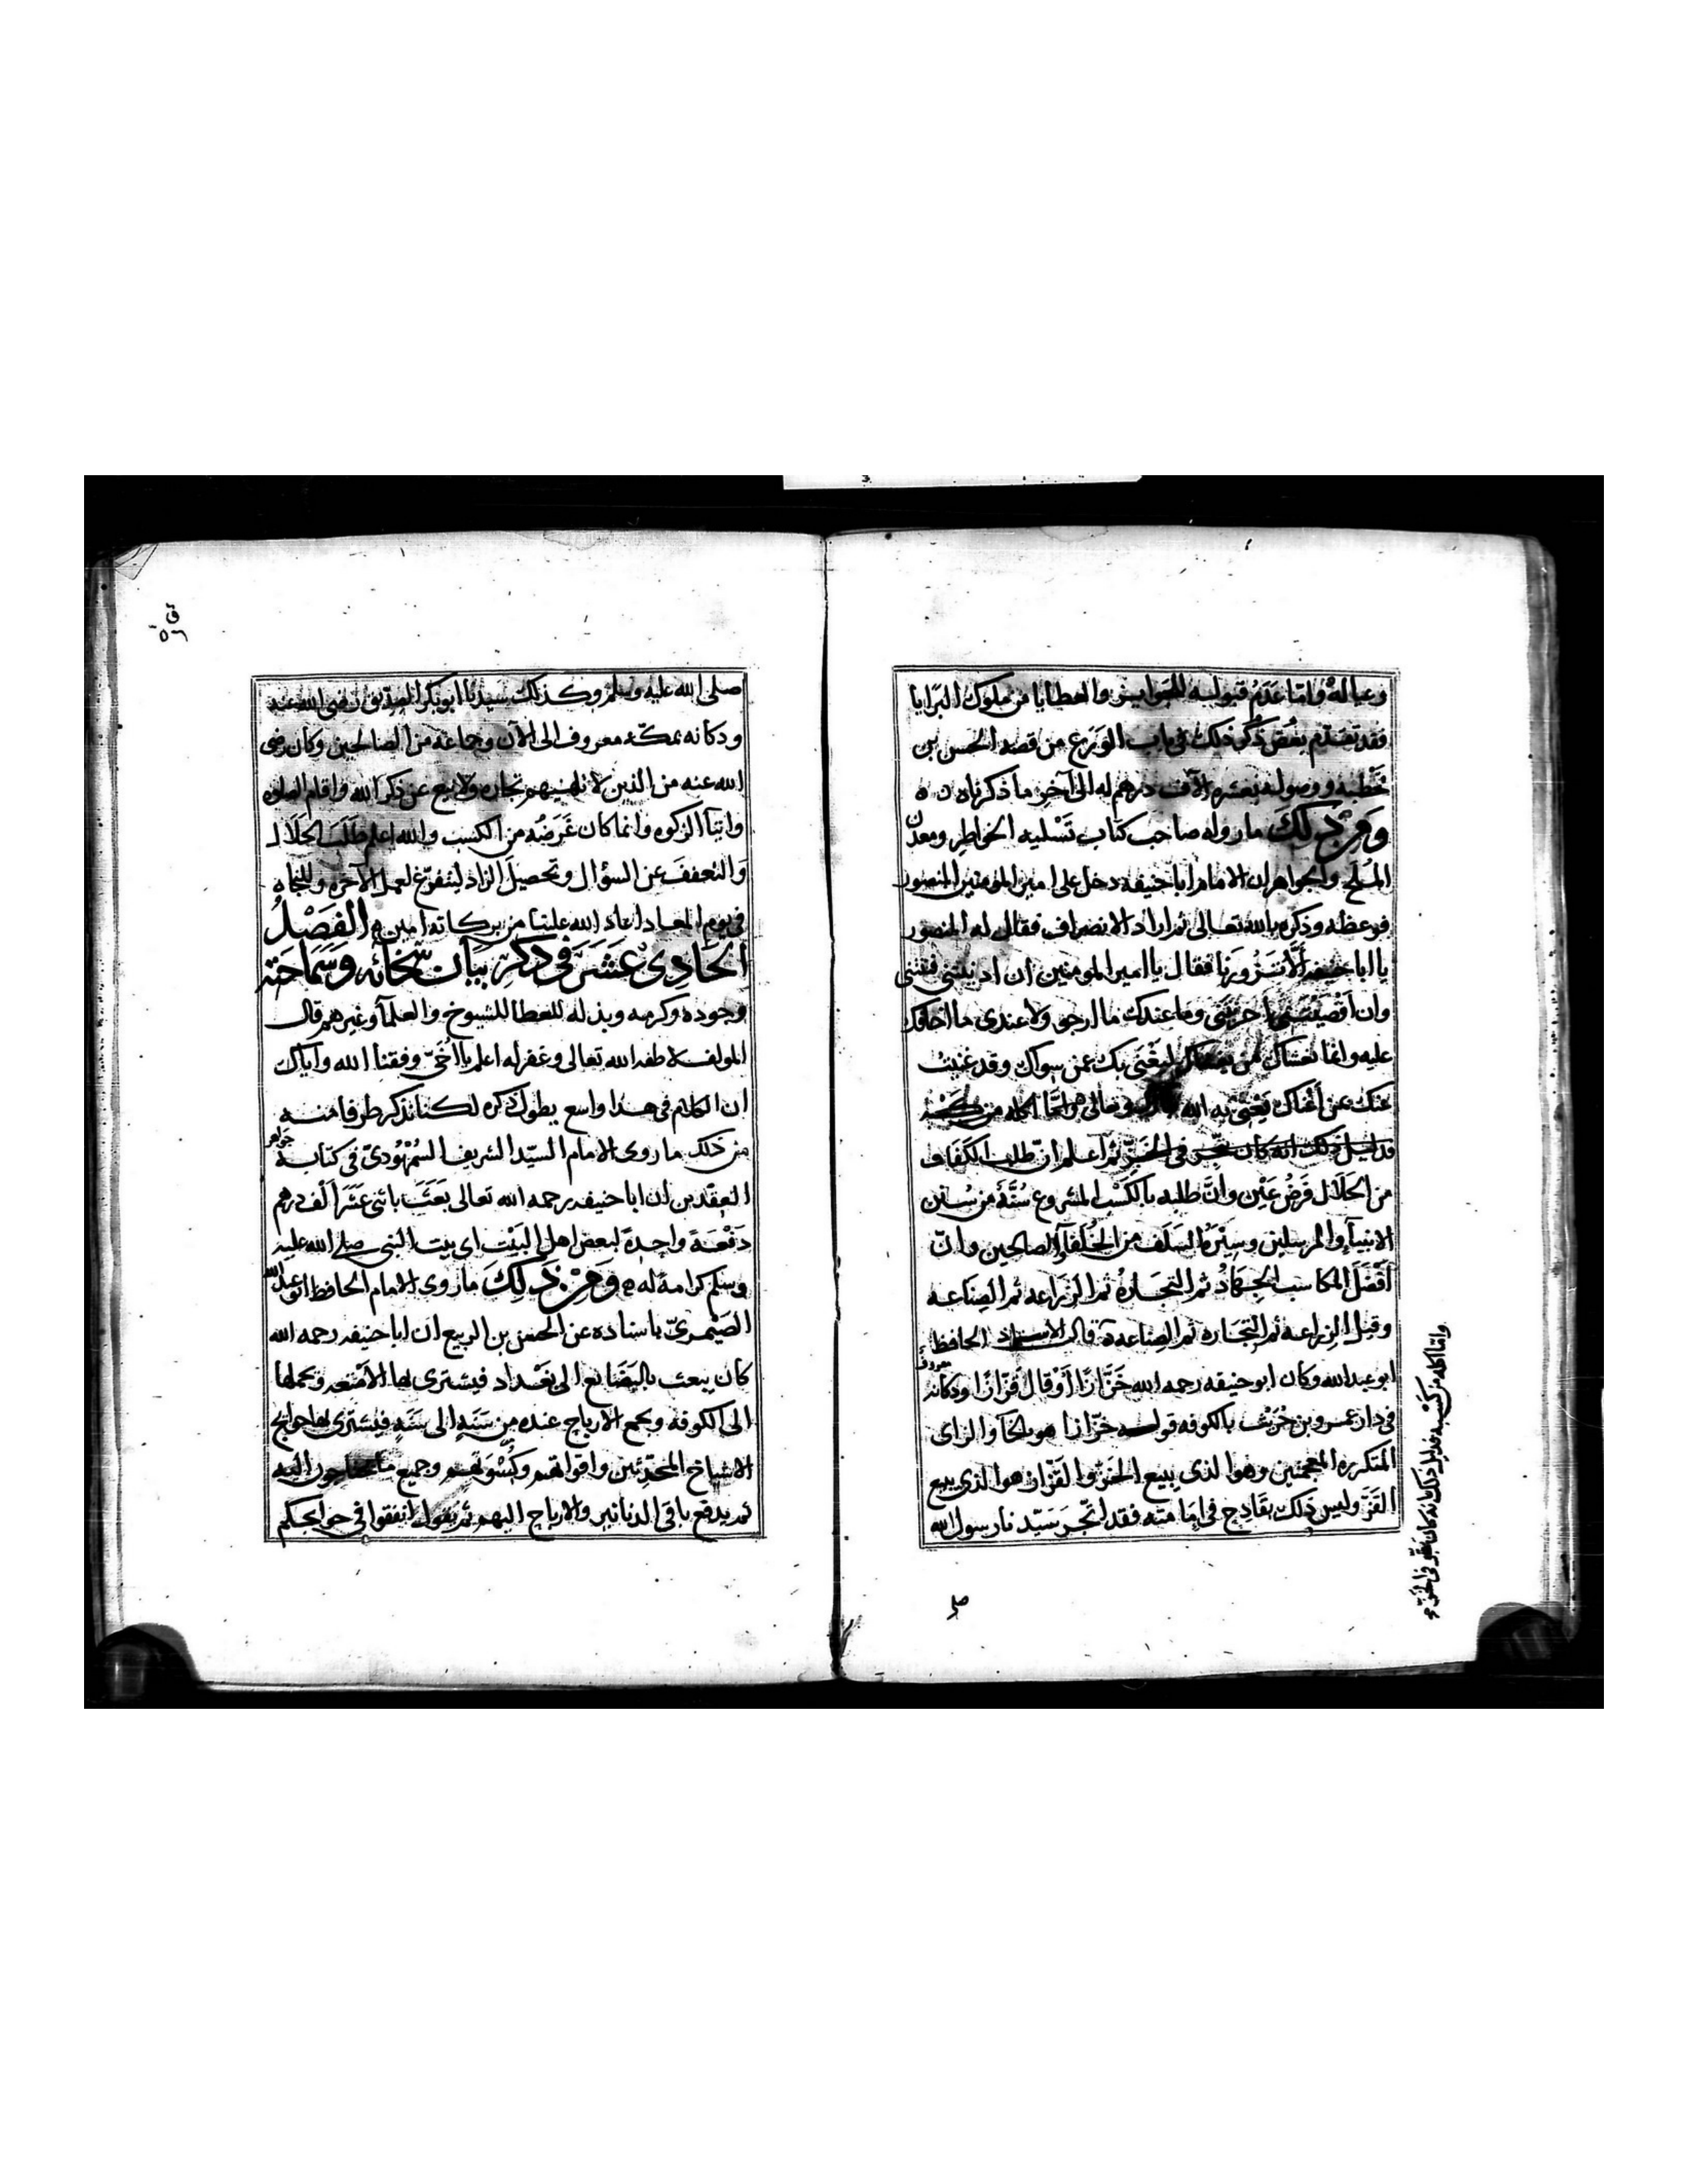 وعياله واما عدم قبوله للجوايز والعطايا من ملوك البرايا
فقد تقدم بعض ذكر ذلك في باب الورع من قصه الحسن بن
قحطبه ووصوله بعشره الآف درهم له الى آخر ما ذكرناه
ومن ذلك ما رواه صاحب كتاب تسليه الخواطر ومعدن
الملح والجواهر ان الامام ابا حنيفه دخل على امير المومنين المنصور
فوعظه وذكره بالله تعالى ثم اراد الانصراف فقال له المنصور
يا ابا حنيفه ألا تزورنا فقال يا امير المومنين ان ادنيتني فتنتني
وان اقصيتني احزنتني وما عندك ما ارجو ولا عندي ما اخافك
عليه وانما يغشاك من يغشاك ليغنى بك عمن سواك وقد غنيت
عنك بمن أغناك يعني به الله
فدليل ذلك انه كان يتجر في الخز ثم اعلم ان طلب الكفاف
من الحلال فرض عين وان طلبه بالكسب المشروع سنة من سنن
الانبيآء والمرسلين وسيرة السلف من الخلفآء والصالحين وان
افضل المكاسب الجهاد ثم التجارة ثم الزراعه ثم الصناعه
وقيل الزراعه ثم التجاره ثم الصناعه قال الاستاذ الحافظ
ابو عبد الله وكان ابو حنيفه رحمه الله خزازًا أو قال قزازًا ودكانه معروف
في دار عمرو بن حريث بالكوفه قوله خزازا هو بالخآ والزاى
المتكرره المعجمتين وهو الذي يبيع الخز والقزاز هو الذي يبيع
القز وليس ذلك بقادح في امامته فقد اتجر سيدنا رسول الله
واما اكله من كسبه فدليل ذلك انه كان يتجر في الخز
صلى
ق
٥٦
صلى الله عليه وسلم وكذلك سيدنا ابو بكر الصديق رضي الله عنه
ودكانه بمكه معروف الى الآن وجماعه من الصالحين وكان رضى
الله عنه من الذين لا تلهيهم تجاره ولا بيع عن ذكر الله واقام الصلاه
وايتآ الزكوه وانما كان غرضه من الكسب والله اعلم طلب الحلال
والتعفف عن السؤال وتحصيل الزاد ليتفرغ لعمل الآخره وللنجاه
في يوم المعاد اعاد الله علينا من بركاته امين الفصل
الحادي عشر في ذكر بيان سخائه وسماحته
وجوده وكرمه وبذله للعطا للشيوخ والعلمآء وغيرهم قال
المولف لاطفه الله تعالى وغفر له اعلم يا اخي وفقنا الله واياك
ان الكلام في هذا واسع يطول ذكره لكنا نذكر طرفا منه
من ذلك ما روى الامام السيد الشريف السمهودي في كتابه جواهر
العقدين ان ابا حنيفه رحمه الله تعالى بعث باثني عشر ألف درهم
دفعة واحدة لبعض اهل البيت اى بيت النبي صلى الله عليه
وسلم كرامة له ومن ذلك ما روى الامام الحافظ ابو عبد الله
الصيمري باسناده عن الحسن بن الربيع ان ابا حنيفه رحمه الله
كان يبعث بالبضايع الى بغداد فيشترى لها الامتعه ويحملها
الى الكوفه ويجمع الارباح عنده من سنة الى سنة فيشترى لها حوايج
الاشياخ المحدثين واقواتهم وكسوتهم وجميع ما يحتاجون اليه
ثم يدفع باقي الدنانير والارباح اليهم ثم يقول انفقوا في حوايجكم